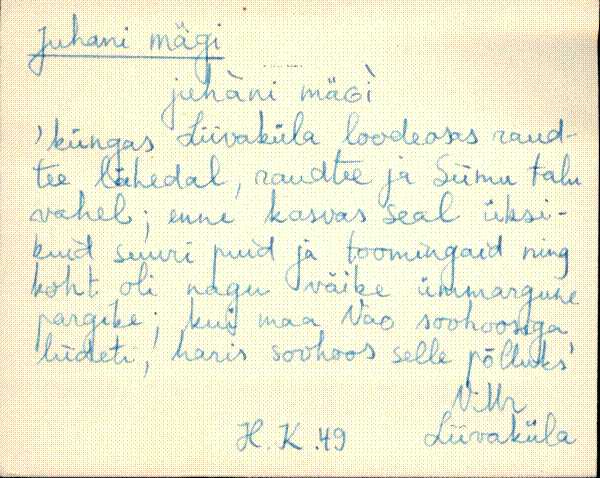 Juhani mägi
juhàni mäɢì
'küngas Liivaküla loodeosas raud-
tee lähedal, raudtee ja Siimu talu
vahel; enne kasvas seal üksi-
kuid suuri puid ja toomingaid ning
koht oli nagu väike ümmargune
pargike; kui maa Vao sovhoosiga
liideti, haris sovhoos selle põlluks'
V.Mr
H.K.49 Liivaküla